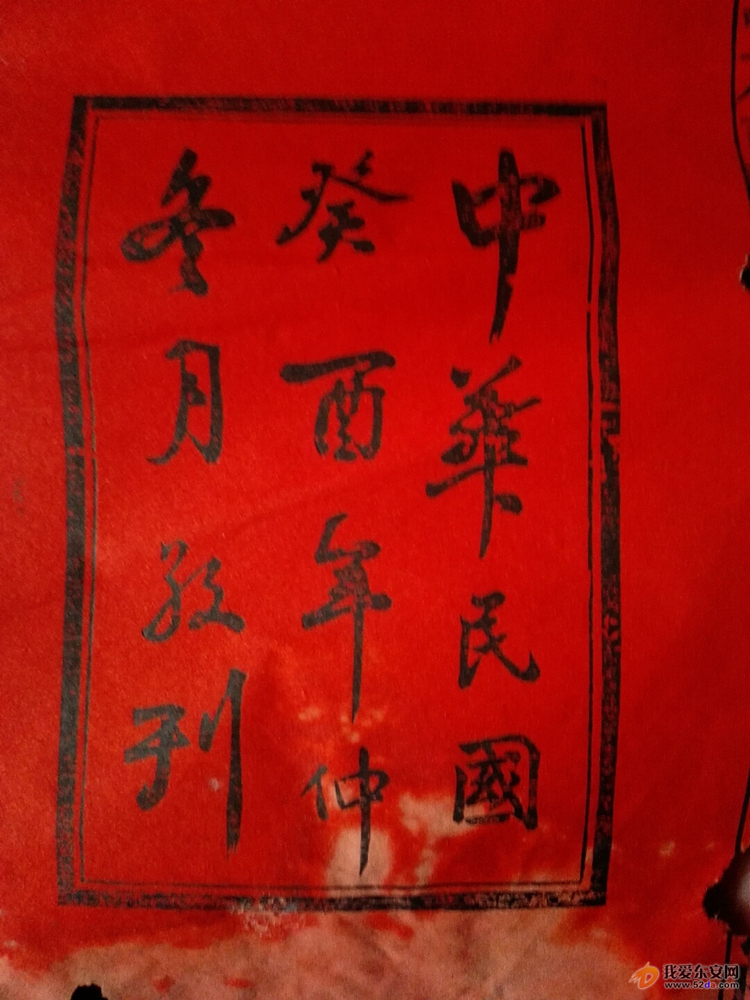 中華民國
癸酉年仲
冬月敬刊
我爱东安网
www.52da.com